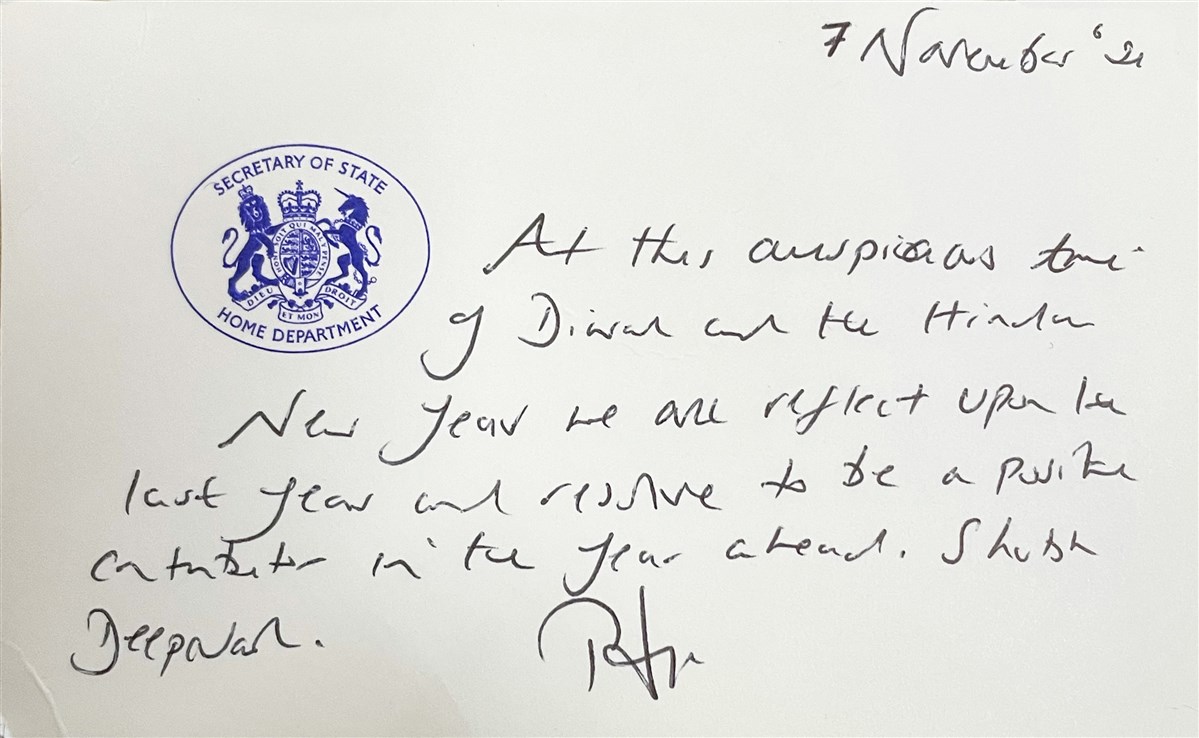 7 November '21
SECRETARY OF STATE
HONI SOIT QUI MAL Y PENSE
DIEU ET MON DROIT
HOME DEPARTMENT
At this auspicious time
of Diwali and the Hindu
New Year we all reflect upon the
last year and resolve to be a positive
contributor in the year ahead. Shubh
Deepavali.